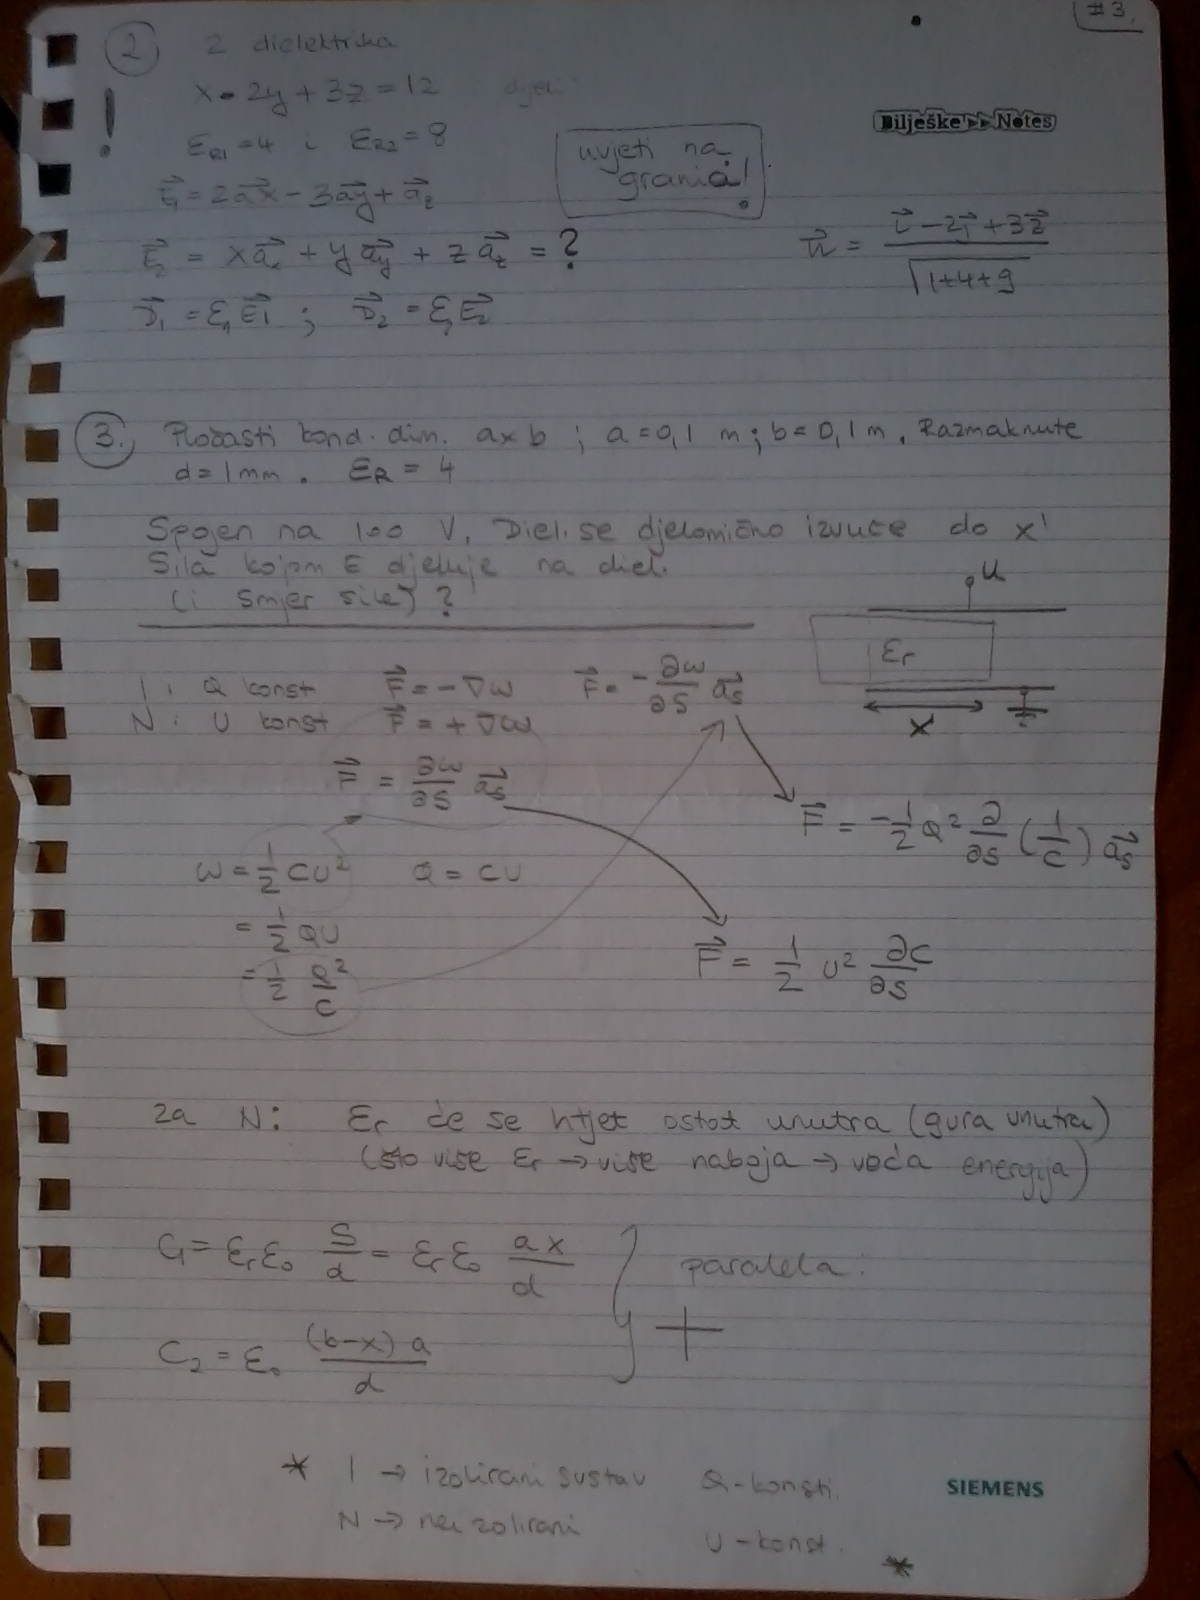 #3.
2 2 dielektrika
x - 2y + 3z = 12 djeli
!
Bilješke ▸▸ Notes
εR1 = 4 i εR2 = 8
uvjeti na
granici!
E⃗1 = 2a⃗x - 3a⃗y + a⃗z
E⃗2 = xa⃗x + ya⃗y + za⃗z = ?
n⃗ = (i⃗ - 2j⃗ + 3z⃗) / √(1+4+9)
D⃗1 = ε1E⃗1 ; D⃗2 = ε2E⃗2
3. Pločasti kond. dim. a x b ; a = 0,1 m ; b = 0,1 m. Razmaknute
d = 1 mm. εR = 4
Spojen na 100 V. Diel. se djelomično izvuče do x!
Sila kojom E djeluje na diel.
(i smjer sile) ?
U
εr
x
I: Q konst F⃗ = -∇W F⃗ = -∂W/∂s a⃗s
N: U konst F⃗ = +∇W
F⃗ = ∂W/∂s a⃗s
F⃗ = -1/2 Q² ∂/∂s (1/C) a⃗s
W = 1/2 CU² Q = CU
= 1/2 QU
F⃗ = 1/2 U² ∂C/∂s
= 1/2 Q²/C
za N: εr će se htjet ostat unutra (gura unutra)
(što više εr → više naboja → veća energija)
C1 = εrε0 S/d = εrε0 ax/d
paralela:
+
C2 = ε0 (b-x)a/d
* I → izolirani sustav Q - konst.
SIEMENS
N → neizolirani U - konst.
*